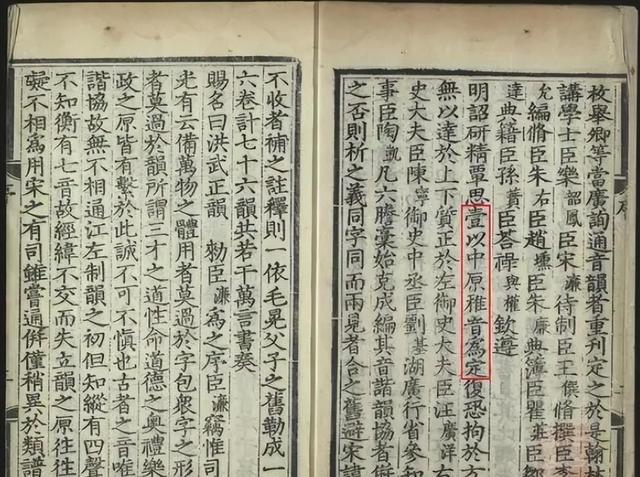 枚舉卿等當廣詢通音韻者重刊定之於是翰林
講學士臣樂韶鳳臣宋濂待制臣王僎脩撰臣李
允編脩臣朱右臣趙壎臣朱廉典簿臣瞿莊臣鄒
達典籍臣孫蕡臣荅祿與權欽遵
明詔研精覃思壹以中原雅音爲定復恐拘於方
無以達於上下質正於左御史大夫臣汪廣洋右
史大夫臣陳寧御史中丞臣劉基湖廣行省參知
事臣陶凱凡六謄藁始克成編其音諧韻協者併
之否則析之義同字同而兩見者合之舊避宋諱
不收者補之註釋則一依毛晃父子之舊勒成一
六卷計七十六韻共若干萬言書奏
賜名曰洪武正韻勑臣濂爲之序臣濂竊惟司
光有云備萬物之體用者莫過於字包衆字之形
者莫過於韻所謂三才之道性命道德之奧禮樂
政之原皆有繫於此誠不可不慎也古者之音唯
諧協故無不相通江左制韻之初但知縱有四聲
不知衡有七音故經緯不交而失立韻之原往往
礙不相爲用宋之有司雖嘗通併僅稍異於類譜